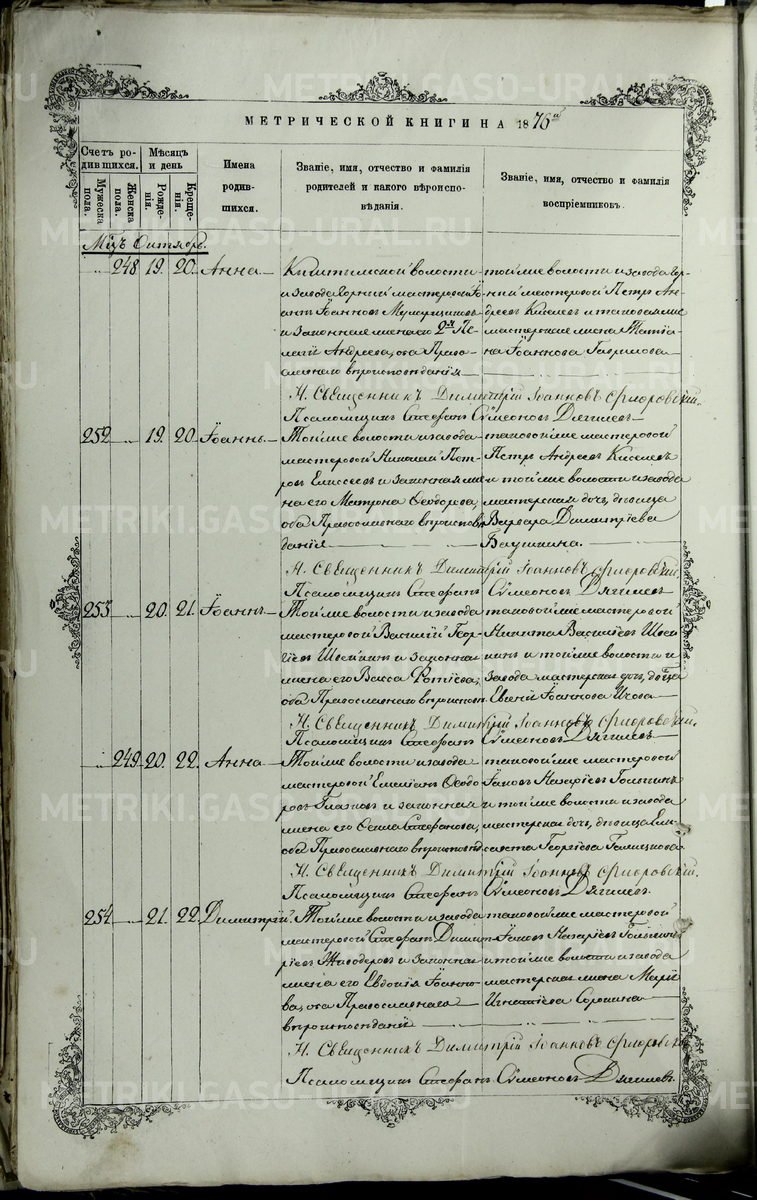 МЕТРИЧЕСКОЙ КНИГИ НА 1876й
Счетъ родившихся.
Мѣсяцъ и день
Имена родившихся.
Званіе, имя, отчество и фамилія родителей и какого вѣроисповѣданія.
Званіе, имя, отчество и фамилія воспріемниковъ.
Мужеска пола.
Женска пола.
Рожденія.
Крещенія.
Мцъ Октябрь.
„ 248 19. 20. Анна
Кыштымской волости
и завода Горный мастеровой Іоаннъ Іоанновъ
и законная жена его 2й Пелагія Андреева, оба Православнаго вѣроисповѣданія
той же волости и завода Горный мастеровой Петръ Андреевъ Киселевъ и таковая же
мастерская жена Татіана Іоаннова Гаврилова
Н. Священникъ Димитрій Іоанновъ Флоровскій.
Псаломщикъ Стефанъ Сѵмеоновъ Дягилевъ
252 „ 19. 20. Іоаннъ
Той же волости и завода
мастеровой Николай Петровъ Елисеевъ и законная жена его Матрона Ѳеодорова,
оба Православнаго вѣроисповѣданія
таковой же мастеровой
Петръ Андреевъ Киселевъ
и той же волости и завода
мастерская дочь, дѣвица
Варвара Димитріева
Баушкина.
Н. Священникъ Димитрій Іоанновъ Флоровскій.
Псаломщикъ Стефанъ Сѵмеоновъ Дягилевъ
253 „ 20. 21. Іоаннъ
Той же волости и завода
мастеровой Василій Георгіевъ Швейкинъ и законная
жена его Васса Фотіева,
оба Православнаго вѣроиспов.
таковой же мастеровой
Никита Василіевъ Швейкинъ и той же волости и
завода мастерская дочь, дѣвица
Евѳимія Іоаннова
Н. Священникъ Димитрій Іоанновъ Флоровскій.
Псаломщикъ Стефанъ Сѵмеоновъ Дягилевъ
„ 249 20. 22. Анна
Той же волости и завода
мастеровой Емеліанъ Ѳеодоровъ Глазковъ и законная
жена его Стефанова,
оба Православнаго вѣроисповѣд.
таковой же мастеровой
Іаковъ Назаріевъ Голыгинъ
и той же волости и завода
мастерская дочь, дѣвица Елисавета Георгіева Голицкова
Н. Священникъ Димитрій Іоанновъ Флоровскій.
Псаломщикъ Стефанъ Сѵмеоновъ Дягилевъ.
254 „ 21. 22. Димитрій.
Той же волости и завода
мастеровой Стефанъ Димитріевъ Живодеровъ и законная
жена его Евдокія Іоаннова, оба Православнаго
вѣроисповѣданія
таковой же мастеровой
Іаковъ Назаріевъ Голыгинъ
и той же волости и завода
мастерская жена Марія
Игнатіева Сорокина
Н. Священникъ Димитрій Іоанновъ Флоровскій
Псаломщикъ Стефанъ Сѵмеоновъ Дягилевъ.
METRIKI.GASO-URAL.RU